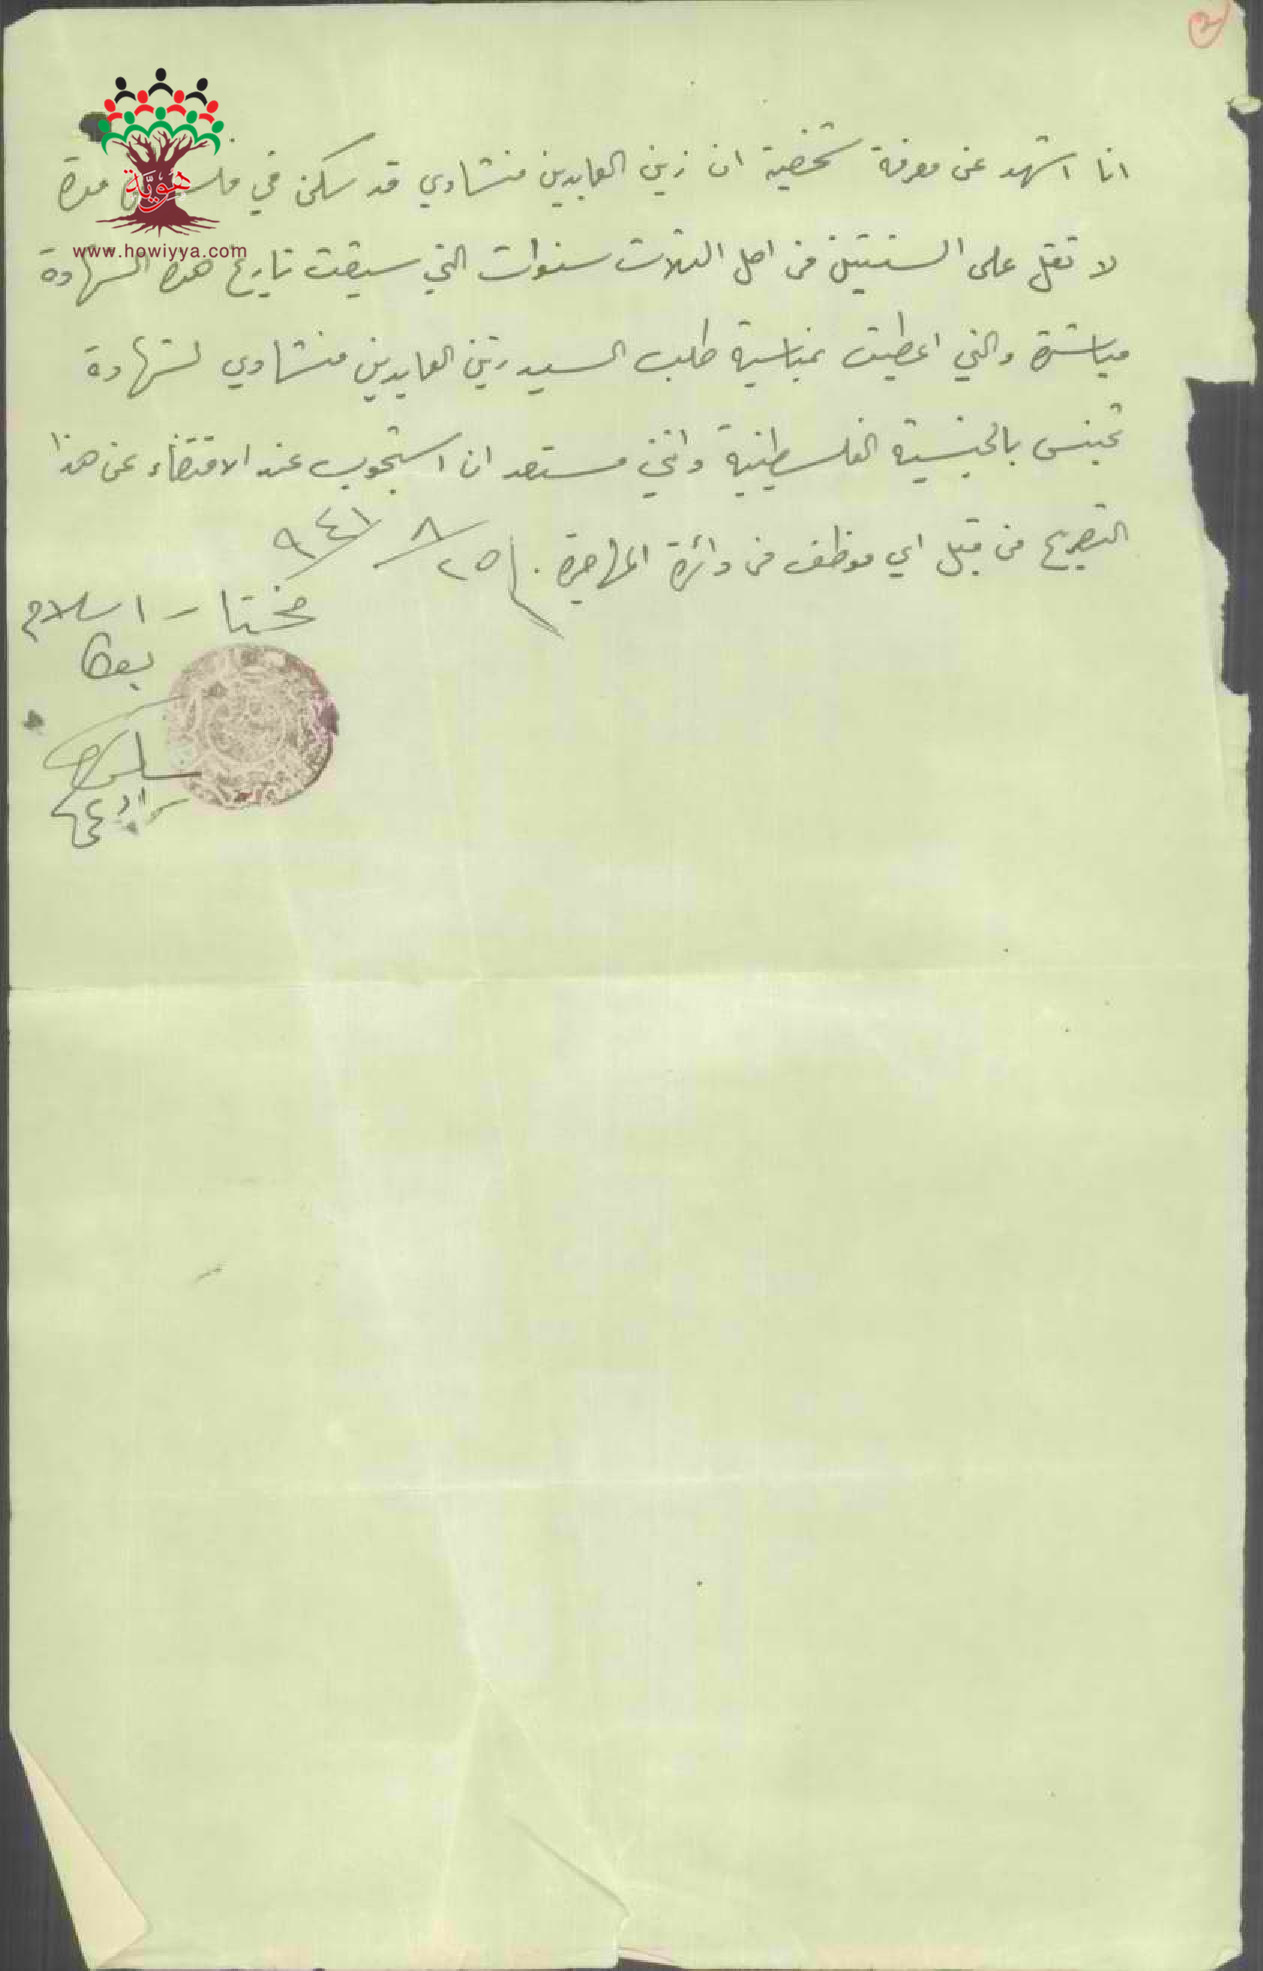 انا اشهد عن معرفة شخصية ان زين العابدين منشاوي قد سكن في مدة
هوية
www.howiyya.com
لا تقل على السنتين من اصل الثلاث سنوات التي سبقت تاريخ هذه الشهادة
مباشرة والتي اعطيت بمناسبة طلب السيد زين العابدين منشاوي لشهادة
تجنس بالجنسية الفلسطينية وانني مستعد ان استجوب عند الاقتضاء عن هذا
التصريح من قبل اي موظف من دائرة المهاجرة . ٢٥/٨/٩٤١
مختار اسلام